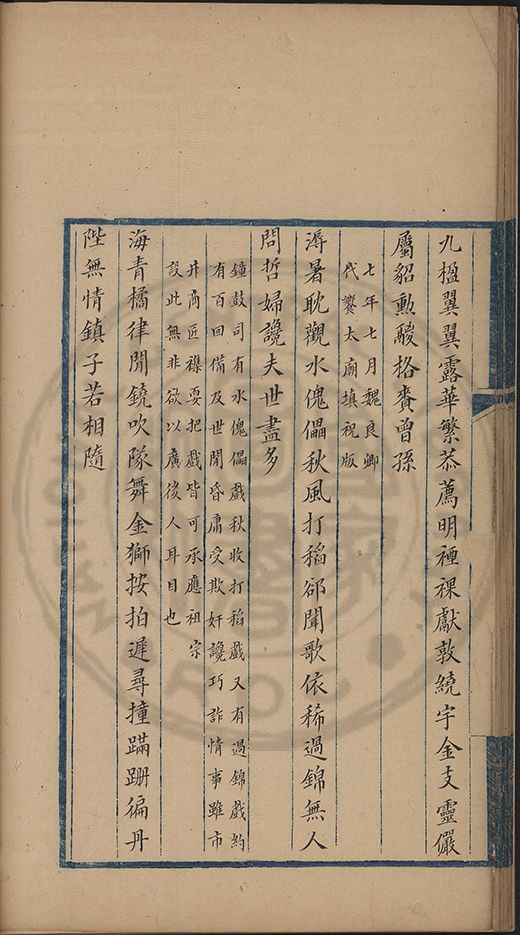 九楹翼翼露華繁恭薦明禋祼獻敦繞宇金支靈儼
屬貂勲駿格賚曾孫
七年七月魏良卿
代饗太廟填祝版
溽暑耽觀水傀儡秋風打稻郤聞歌依稀過錦無人
問哲婦讒夫世盡多
鐘鼓司有水傀儡戲秋收打稻戲又有過錦戲約
有百回備及世間昏庸受欺奸讒巧詐情事雖市
井商匠襍耍把戲皆可承應祖宗
設此無非欲以廣後人耳目也
海青橘律閒鐃吹隊舞金獅按拍遲尋撞蹣跚徧丹
陛無情鎮子若相隨